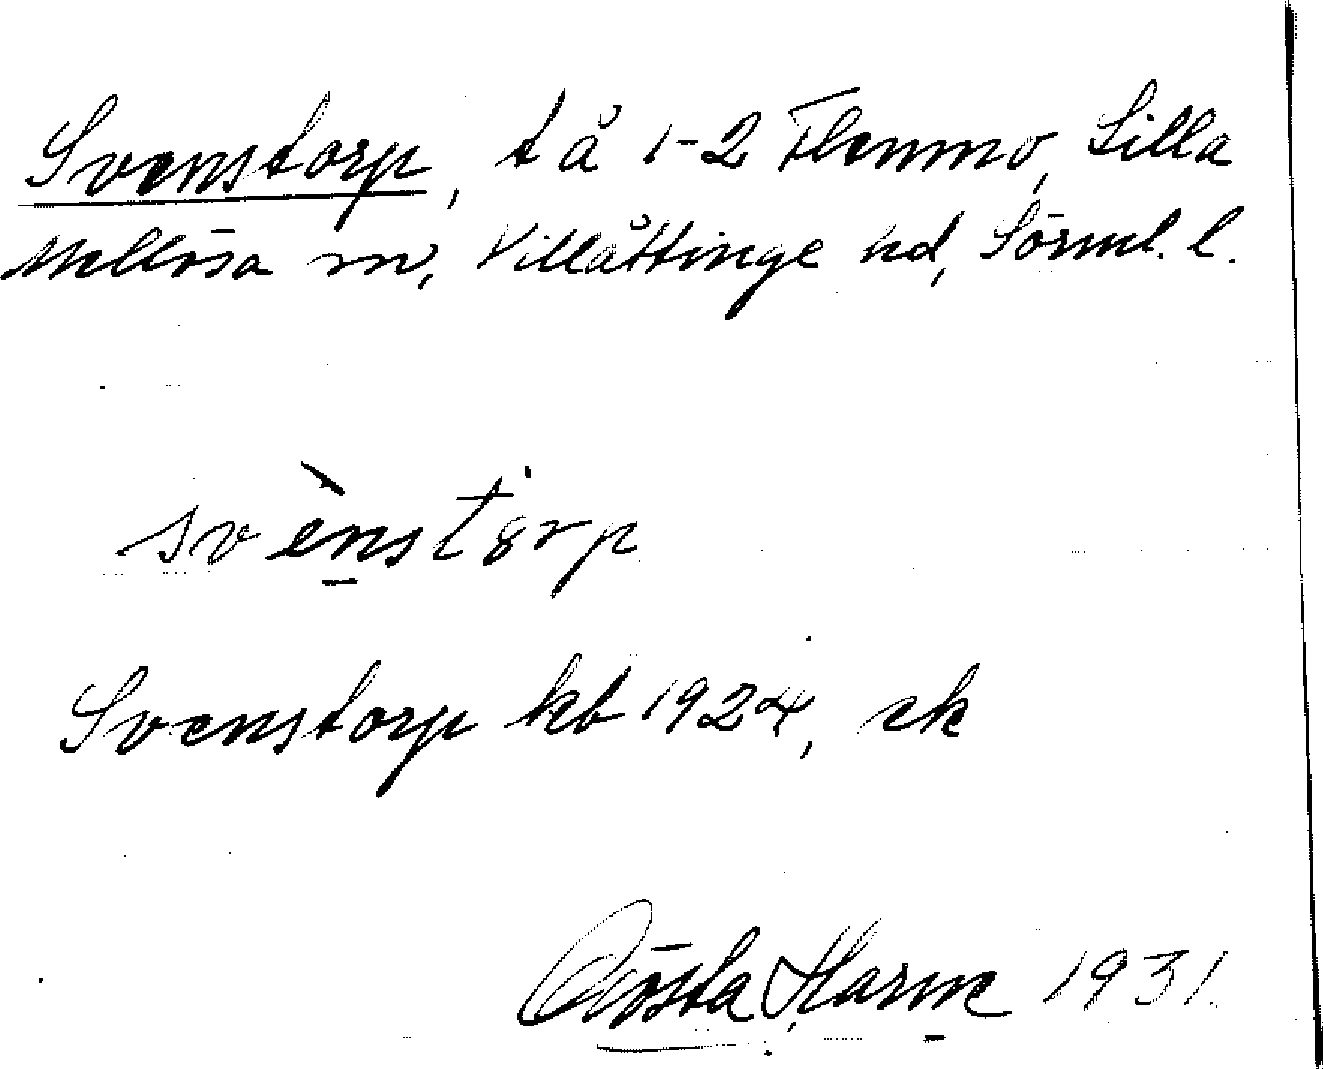 Svenstorp, t å 1-2 Flenmo, Lilla
Mellösa sn, Villåttinge hd, Sörml. l.
svènstȯrp
Svenstorp kb 1924, ek
Gösta Harme 1931.